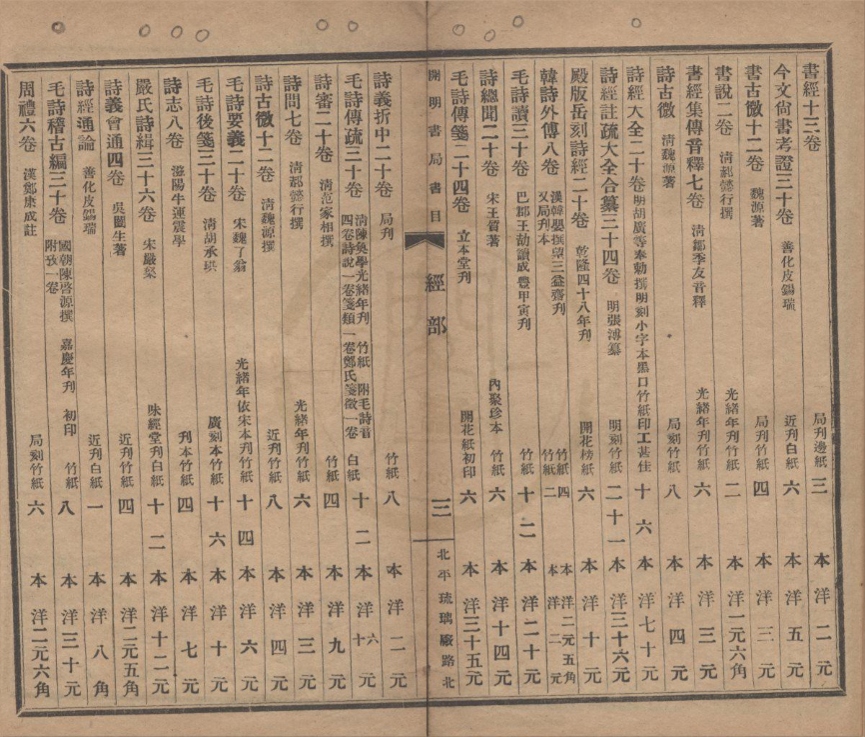 書經十三卷 局刊邊紙 三 本 洋 二 元
今文尙書考證三十卷 善化皮錫瑞 近刋白紙 六 本 洋 五 元
書古微十二卷 魏源著 局刋竹紙 四 本 洋 三 元
書說二卷 清郝懿行撰 光緒年刋竹紙 二 本 洋一元六角
書經集傳音釋七卷 清鄒季友音釋 光緒年刋竹紙 六 本 洋 三 元
詩古微 淸魏源著 局刻竹紙 八 本 洋 四 元
詩經大全二十卷 明胡廣等奉勅撰明刻小字本黑口竹紙印工甚佳 十六 本 洋七十元
詩經註疏大全合纂三十四卷 明張溥纂 明刻竹紙 二十一本 洋三十六元
殿版岳刻詩經二十卷 乾隆四十八年刋 開花榜紙 六 本 洋 十 元
韓詩外傳八卷 漢韓嬰撰望三益齋刋 竹紙 四 本 洋二元五角
又局刋本 竹紙 二 本 洋 二 元
毛詩讀三十卷 巴郡王劼讀咸豐甲寅刋 竹紙 十二 本 洋二十元
詩總聞二十卷 宋王質著 內聚珍本 竹紙 六 本 洋十四元
毛詩傳箋二十四卷 立本堂刋 開花紙初印 六 本 洋三十五元
開明書局書目 經部 三 北平琉璃廠路北
詩義折中二十卷 局刋 竹紙 八 本 洋 二 元
毛詩傳疏三十卷 淸陳奐學光緒年刋 竹紙 附毛詩音四卷詩說一卷箋類一卷鄭氏箋徵一卷 白紙 十二 本 洋 十六 元
詩審二十卷 清范家相撰 竹紙 四 本 洋 九 元
詩問七卷 清郝懿行撰 光緒年刋竹紙 六 本 洋 三 元
詩古微十二卷 淸魏源撰 近刋竹紙 八 本 洋 四 元
毛詩要義二十卷 宋魏了翁 光緒年依宋本刋竹紙 十四 本 洋 六 元
毛詩後箋三十卷 淸胡承珙 廣刻本竹紙 十六 本 洋 十 元
詩志八卷 滋陽牛運震學 刋本竹紙 四 本 洋 七 元
嚴氏詩緝三十六卷 宋嚴粲 味經堂刋白紙 十二 本 洋十二元
詩義會通四卷 吳闓生著 近刋竹紙 四 本 洋二元五角
詩經通論 善化皮錫瑞 近刋白紙 一 本 洋 八 角
毛詩稽古編三十卷 國朝陳啓源撰 附攷一卷 嘉慶年刋 初印 竹紙 八 本 洋三十元
周禮六卷 漢鄭康成註 局刻竹紙 六 本 洋二元六角